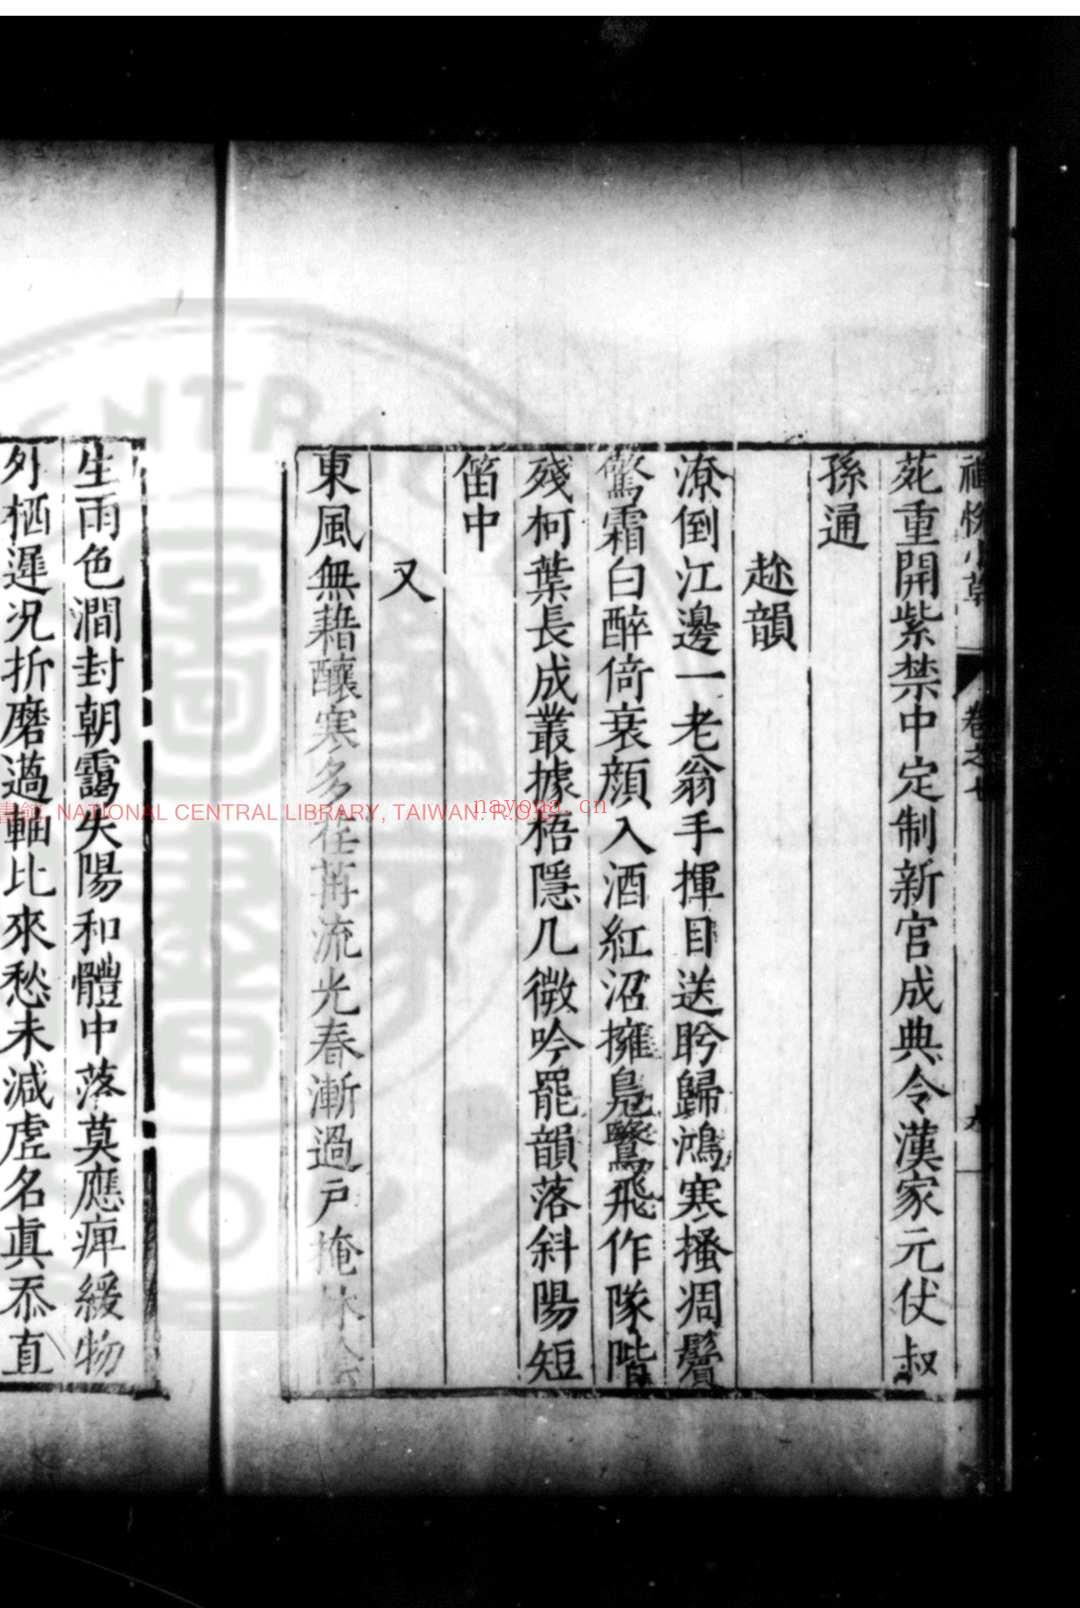 苑重開紫禁中定制新官成典令漢家元仗叔
孫通
趂韻
潦倒江邊一老翁手揮目送盻歸鴻寒搔凋鬢
驚霜白醉倚衰顔入酒紅沼擁鳧鷖飛作隊階
殘柯葉長成叢據梧隱几微吟罷韻落斜陽短
笛中
又
東風無藉釀寒多在苒流光春漸過戸掩
生雨色澗封朝靄失陽和體中落莫應痺緩物
外栖遲况折磨薖軸比來愁未減虗名眞忝直
卷之七
NATIONAL CENTRAL LIBRARY, TAIWAN. R.O.C
nayong.cn